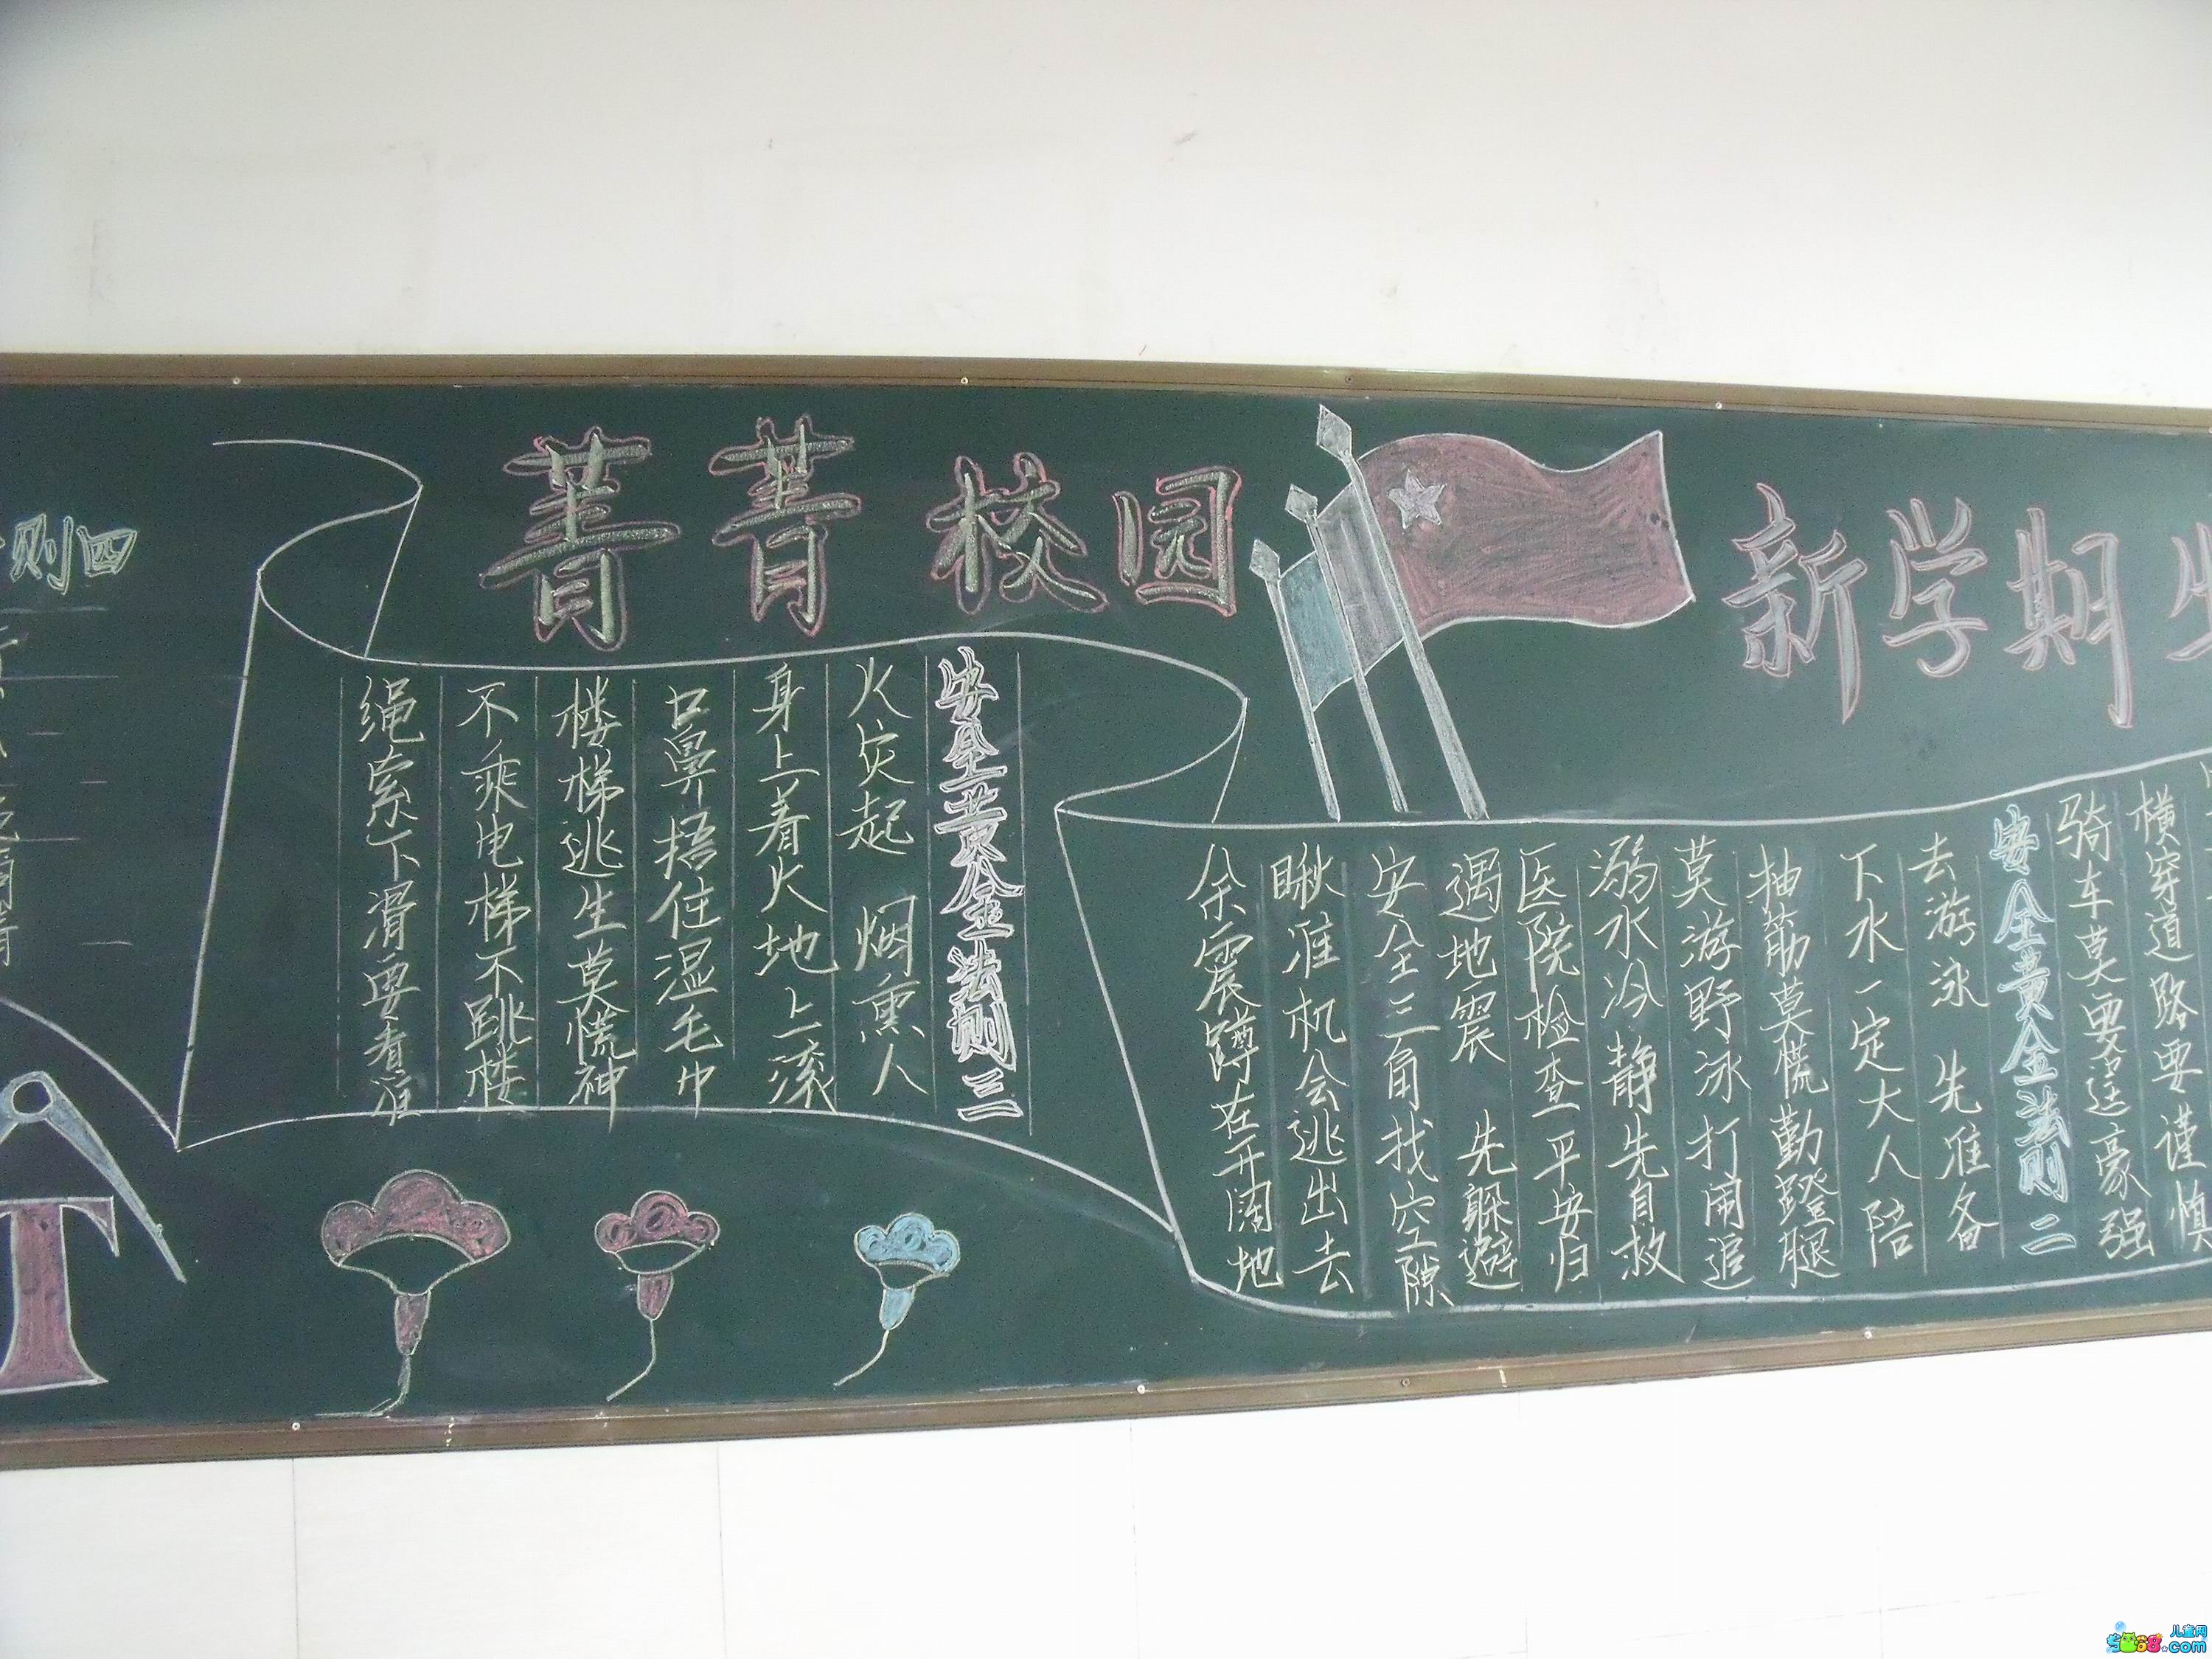 菁菁校园
新学期
横穿道路要谨慎
骑车莫要逞豪强
安全黄金法则二
去游泳 先准备
下水一定大人陪
抽筋莫慌勤蹬腿
莫游野泳打闹追
溺水冷静先自救
医院检查平安归
遇地震 先躲避
安全三角找空隙
瞅准机会逃出去
余震蹲在开阔地
安全黄金法则三
火灾起 烟熏人
身上着火地上滚
口鼻捂住湿毛巾
楼梯逃生莫慌神
不乘电梯不跳楼
绳索下滑要看准
则四
T
儿童网
.com